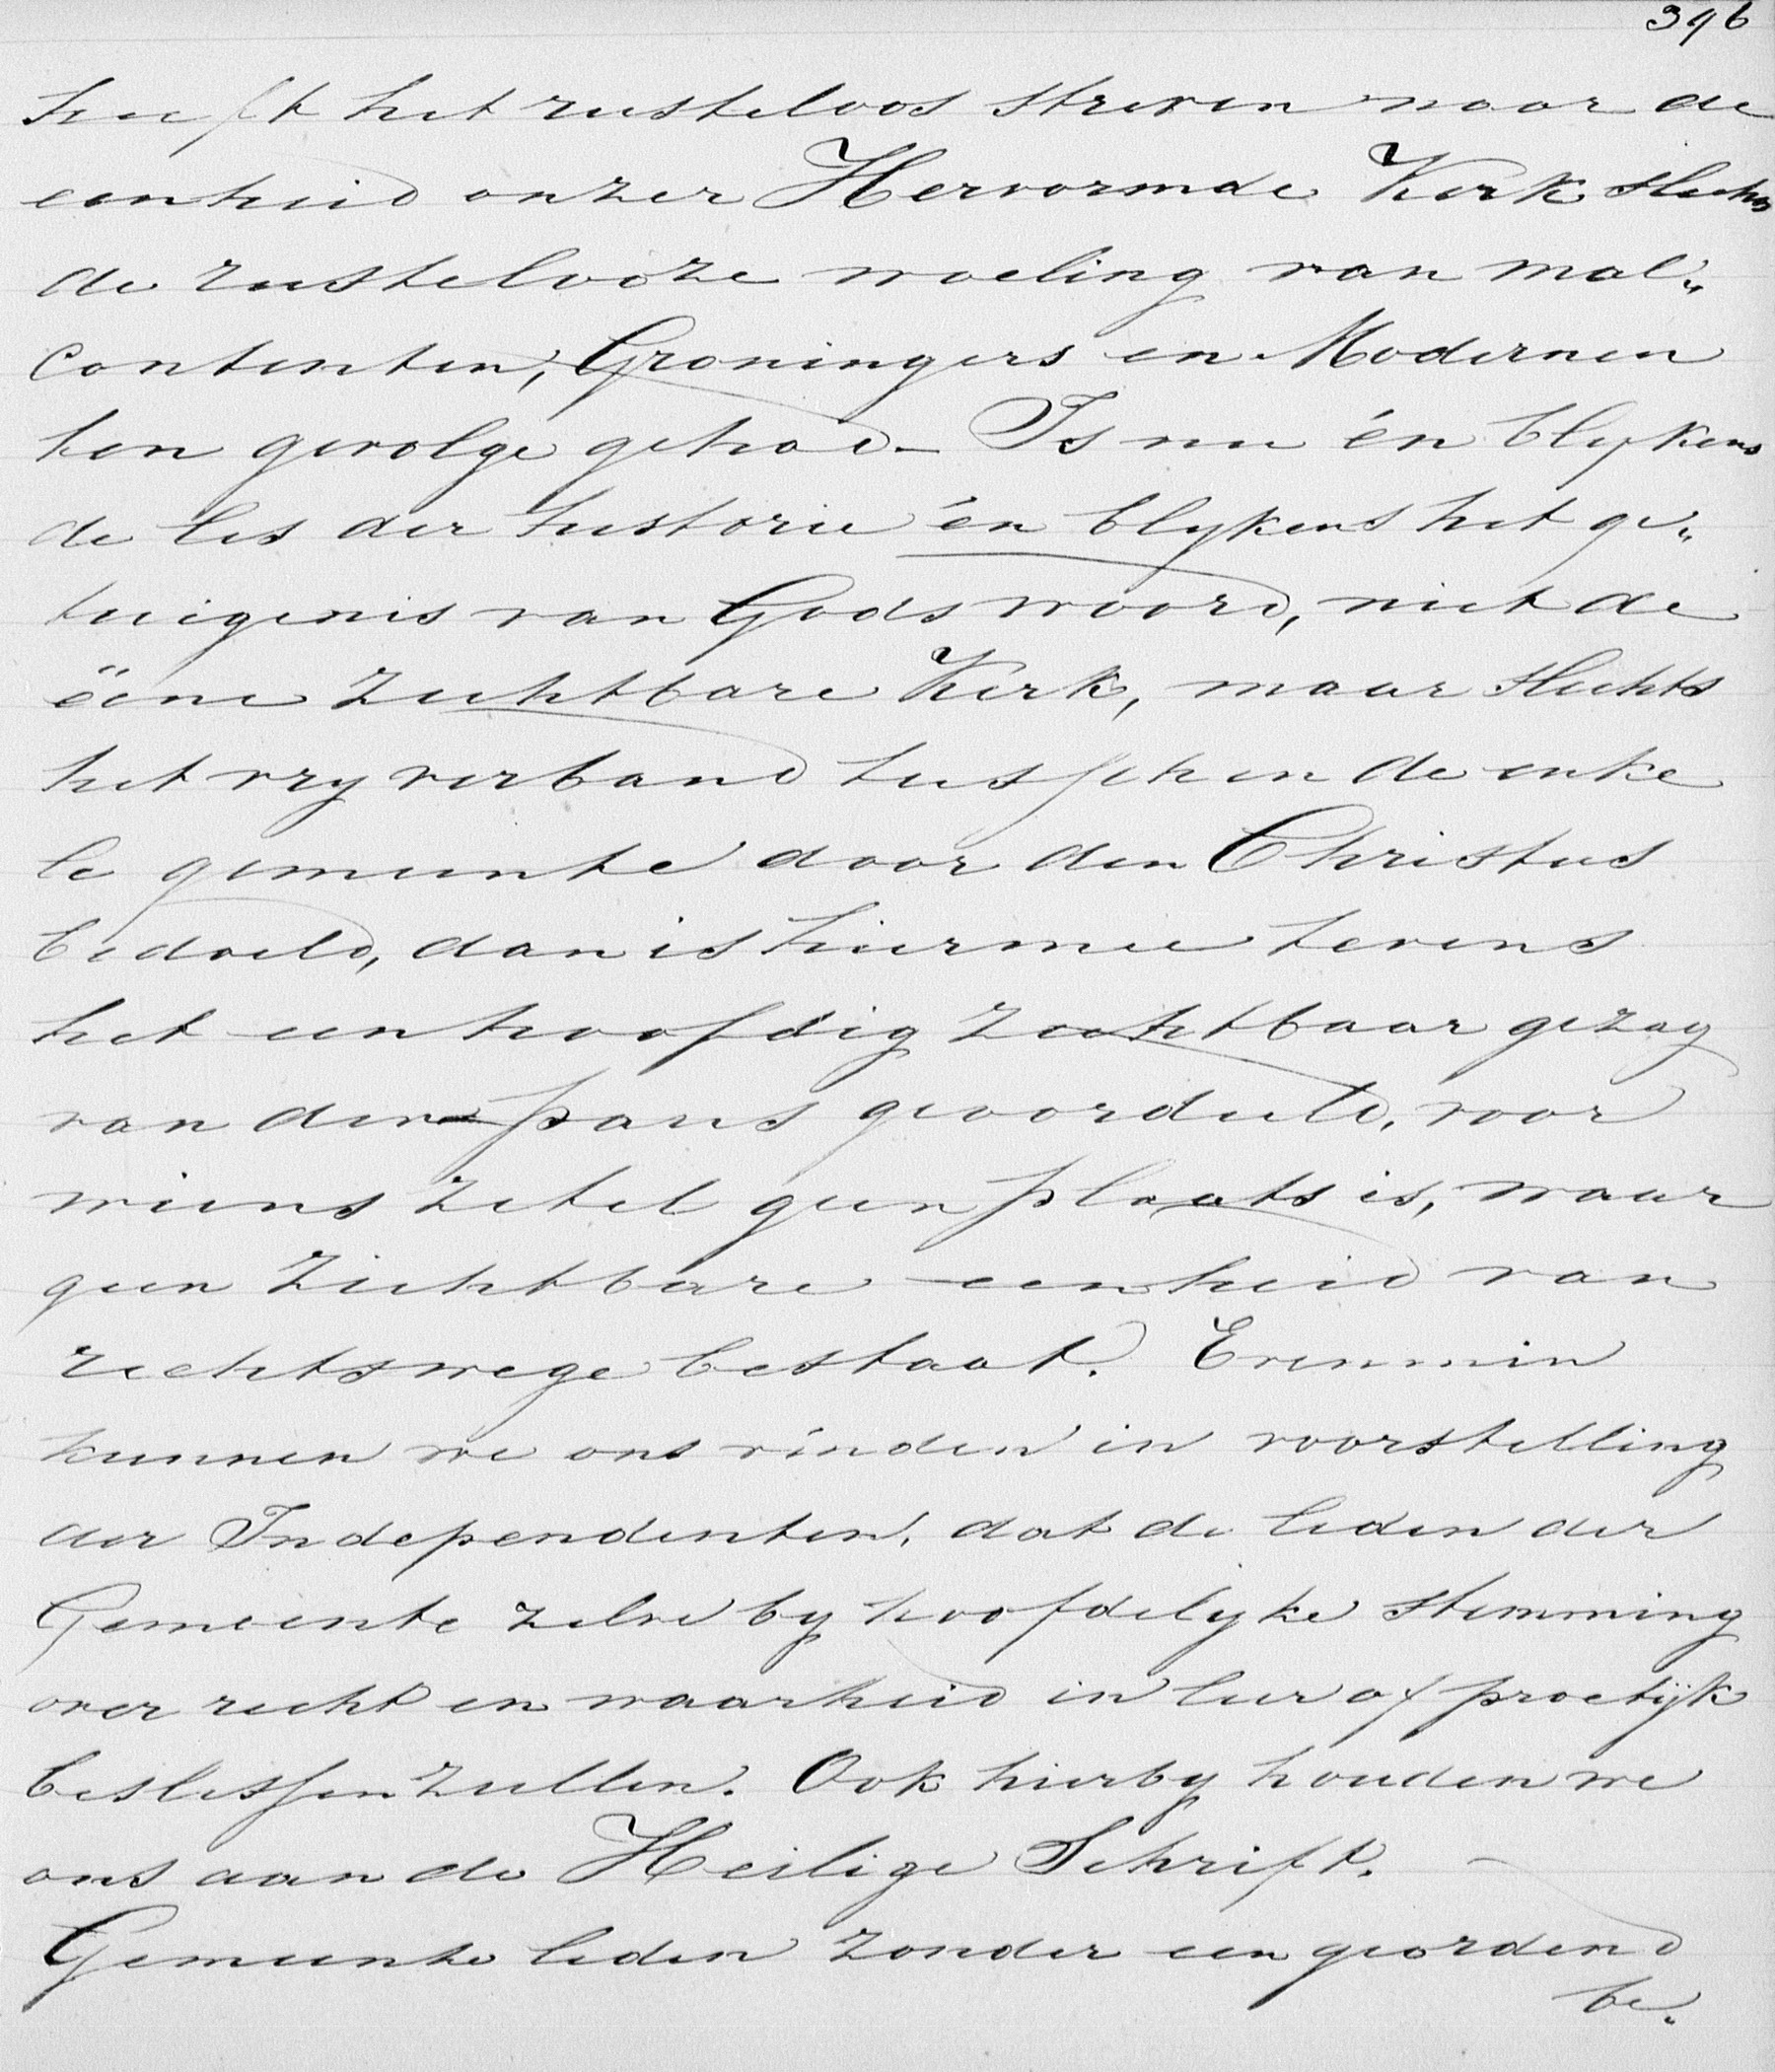 396
heeft het rusteloos streven naar de
eenheid onzer Hervormde Kerk slechts
de rustelooze woeling van mal„
contenten, Groningers en Modernen
ten gevolge gehad_ Is nu én blykens
de les der historie én blykens het ge„
tuigenis van Gods woord, niet de
ëene zichtbare Kerk, maar slechts
het vry verband tusschen de enke
le gemeente door den Christus
bedoeld, dan is hiermee tevens
het eenhoofdig zichtbaar gezag
van den paus geoordeeld, voor
wiens zetel geen plaats is, waar
geen zichtbare eenheid van
rechtswege bestaat. Evenmin
kunnen we ons vinden in voorstelling
der Independenten, dat de leden der
Gemeente zelve by hoofdelyke stemming
over recht en waarheid in leer of practijk
beslissen zullen. Ook hierby houden we
ons aan de Heilige Schrift. —
Gemeente leden zonder een geordend
be„